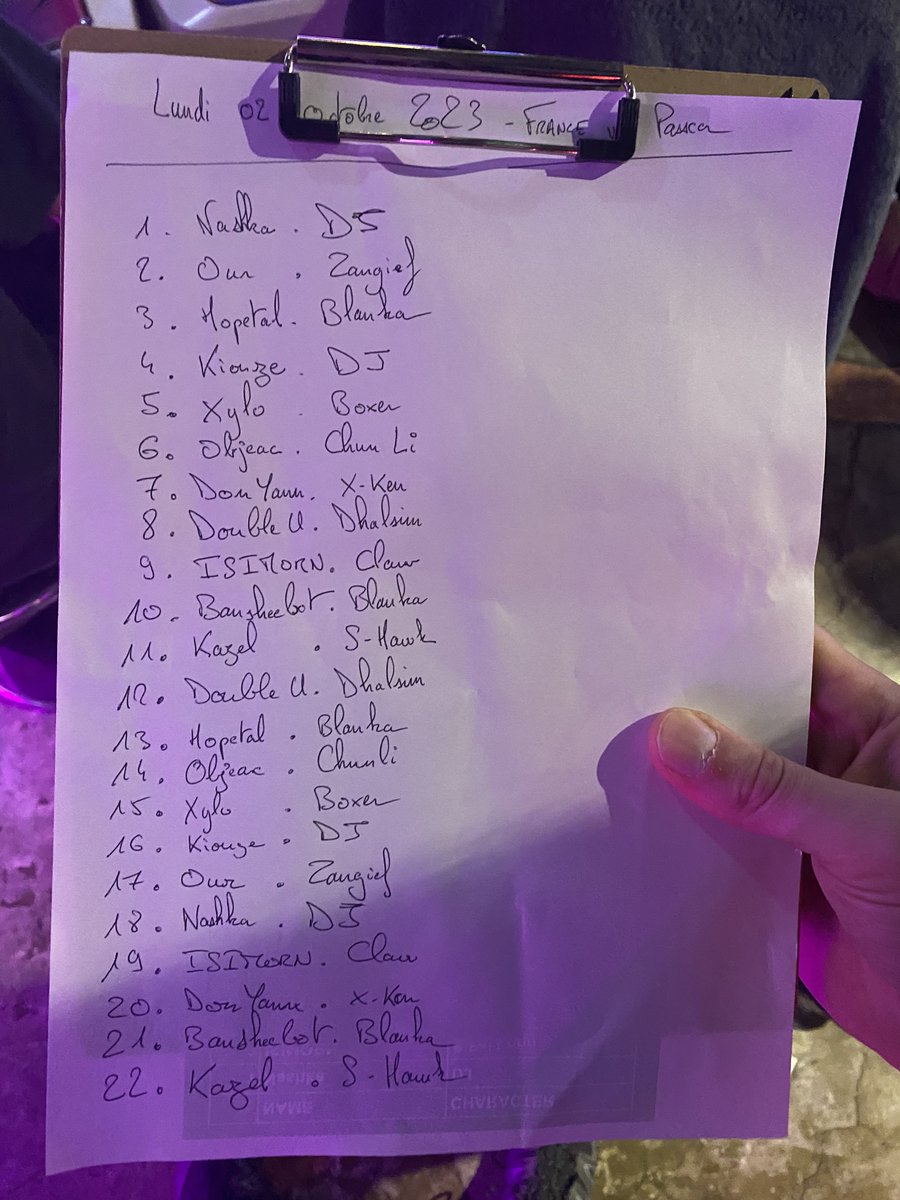 Lundi 02 Octobre 2023 - FRANCE
1. Nashka . DJ
2. Our . Zangief
3. Hopetal. Blanka
4. Kiouze. DJ
5. Xylo . Boxer
6. Objeac. Chun Li
7. Don Yann. X-Ken
8. Double U. Dhalsim
9. ISIMORN. Claw
10. Bansheebot. Blanka
11. Kazel . S-Hawk
12. Double U. Dhalsim
13. Hopetal . Blanka
14. Objeac . Chunli
15. Xylo . Boxer
16. Kiouze . DJ
17. Our . Zangief
18. Nashka . DJ
19. ISIMORN. Claw
20. Don Yann . X-Ken
21. Bansheebot. Blanka
22. Kazel . S-Hawk
NAME CHARACTER